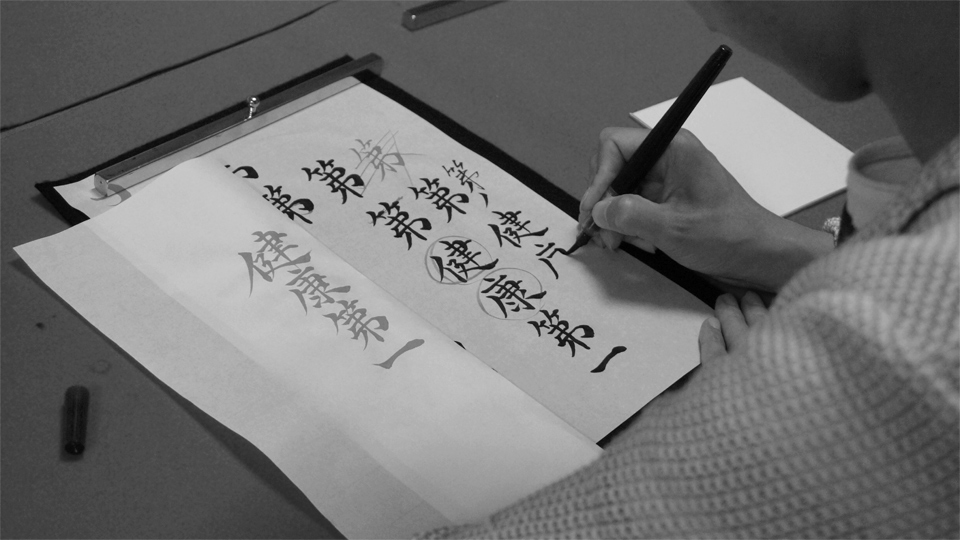 第
第第健
第第健康第一
第
健康第一